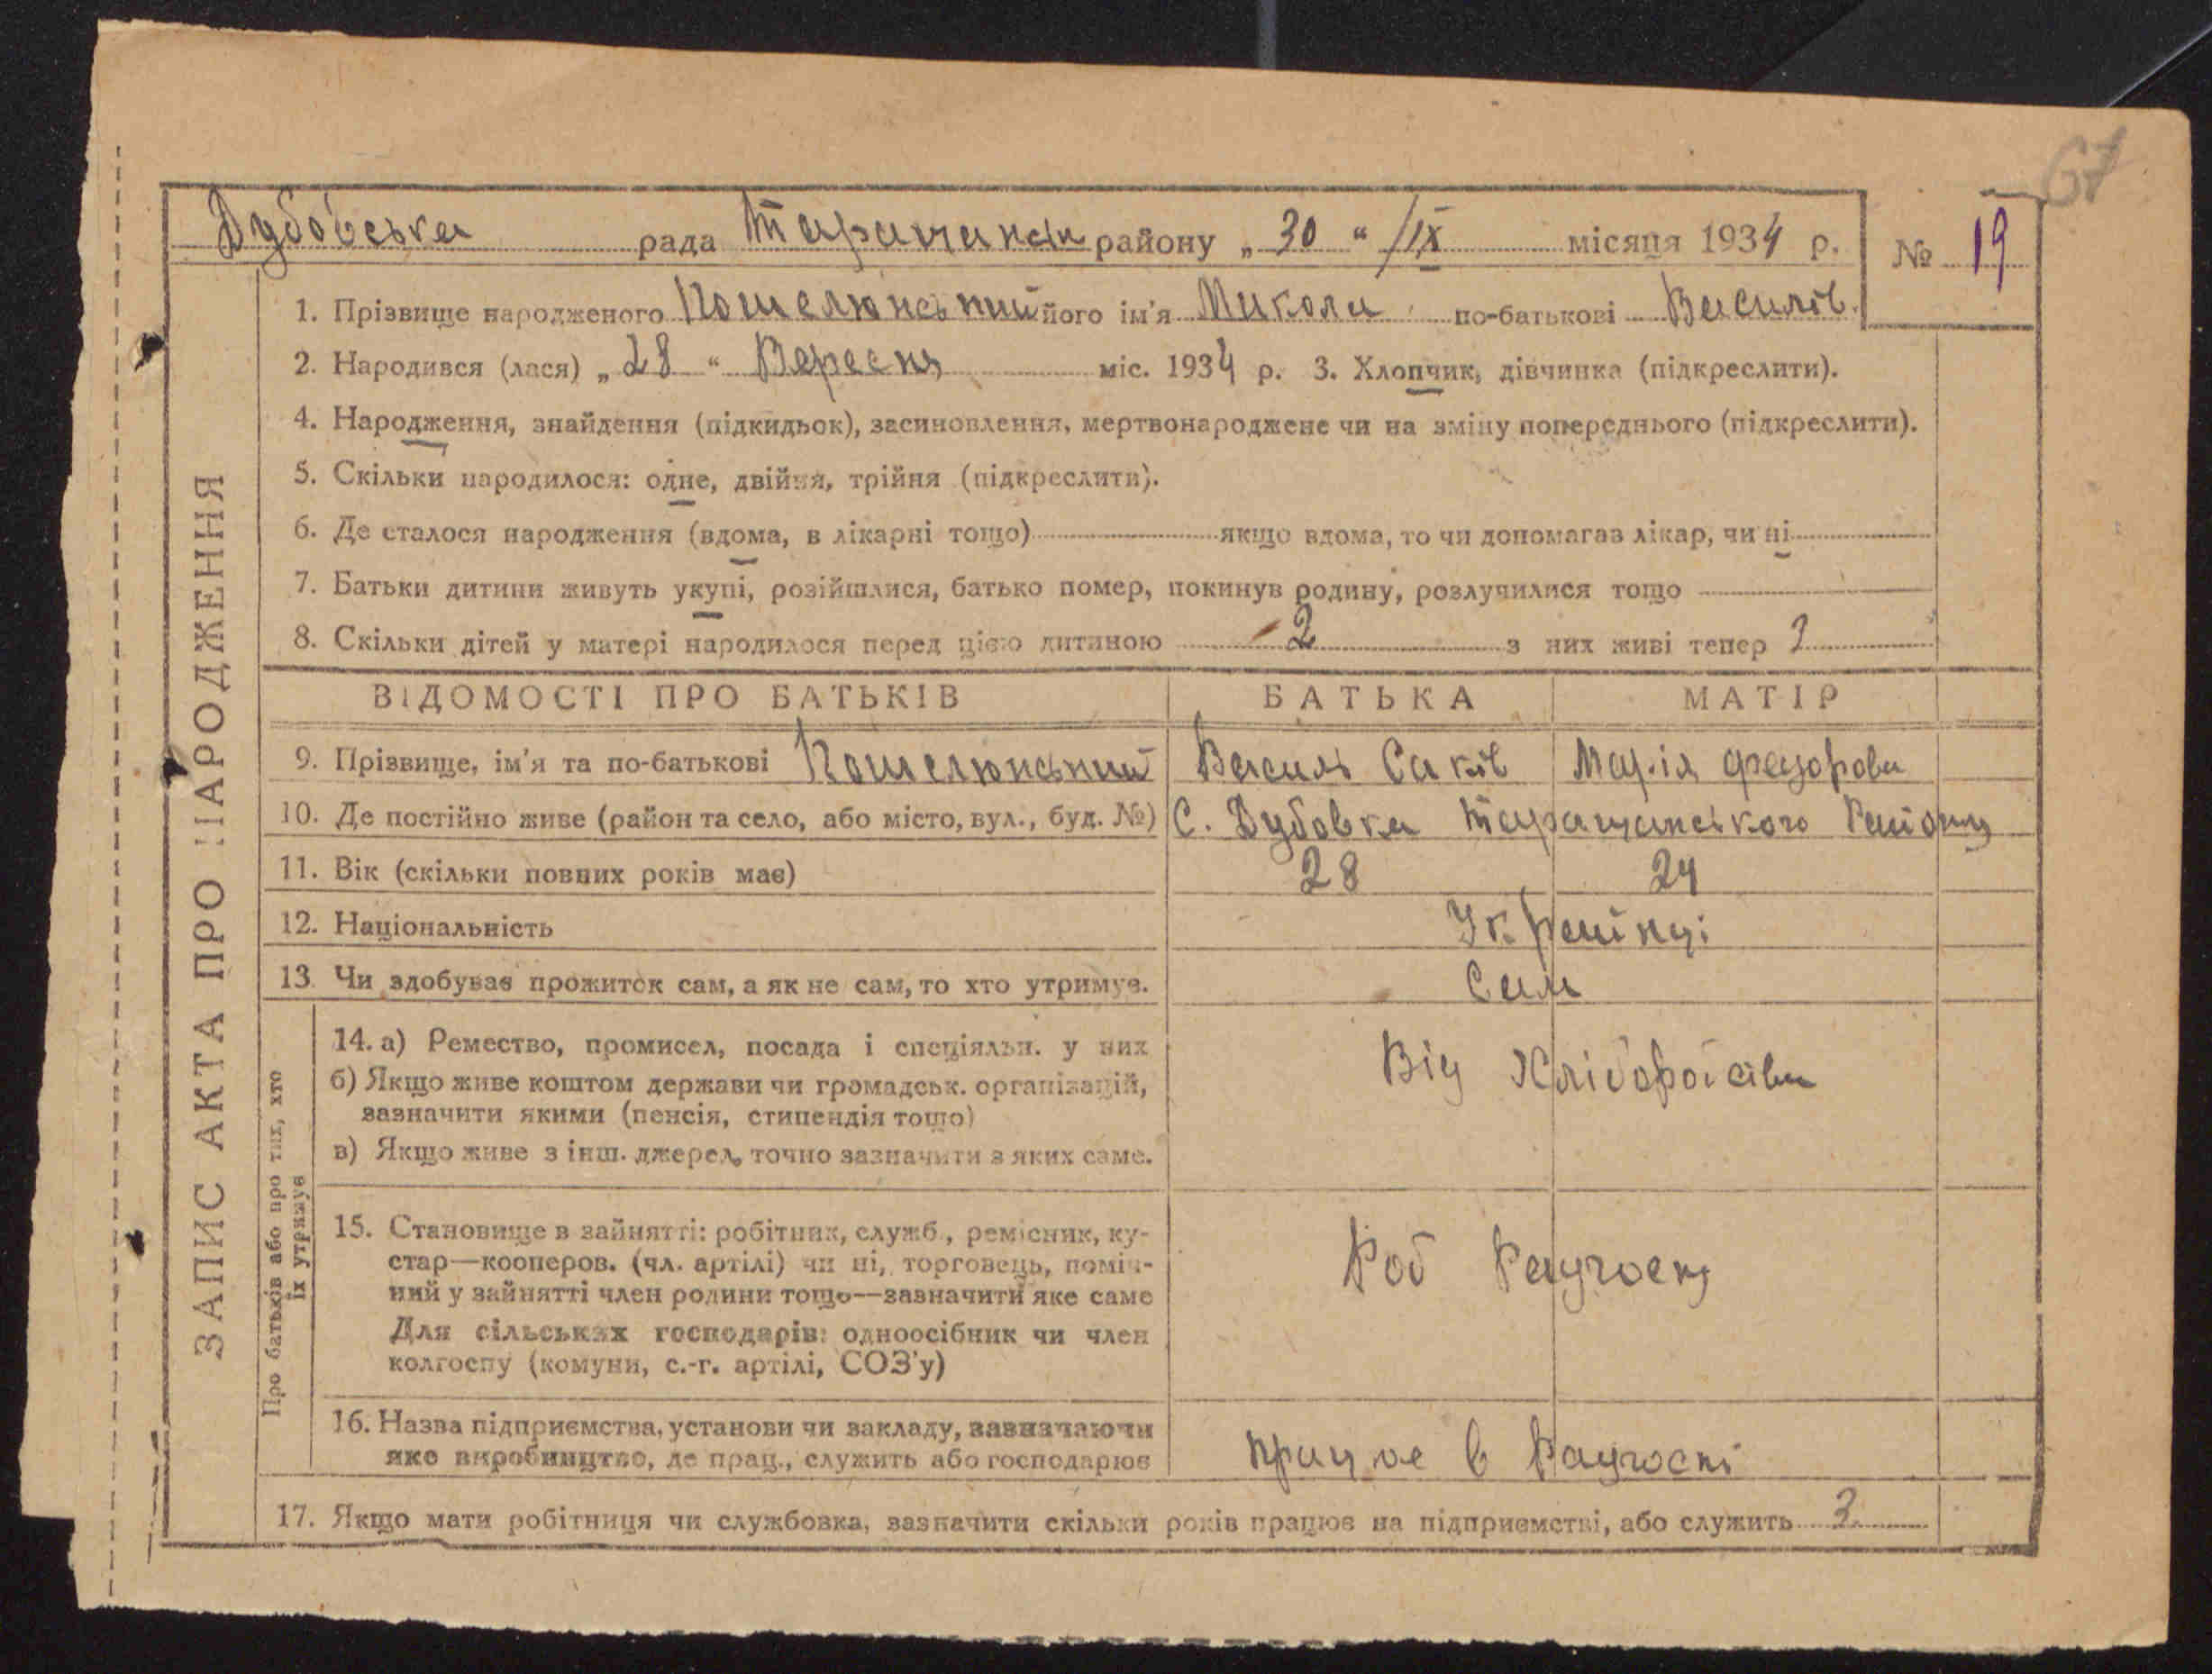 67
Дубовська рада Таращанськ району „30“ /IX місяця 1934 р. № 19
ЗАПИС АКТА ПРО НАРОДЖЕННЯ
1. Прізвище народженого Кошелюнський його ім'я Микола по-батькові Василів.
2. Народився (лася) „28“ Вересня міс. 1934 р. 3. Хлопчик, дівчинка (підкреслити).
4. Народження, знайдення (підкидьок), засиновлення, мертвонароджене чи на зміну попереднього (підкреслити).
5. Скільки народилося: одне, двійня, трійня (підкреслити).
6. Де сталося народження (вдома, в лікарні тощо) якщо вдома, то чи допомагав лікар, чи ні
7. Батьки дитини живуть укупі, розійшлися, батько помер, покинув родину, розлучилися тощо
8. Скільки дітей у матері народилося перед цією дитиною 2 з них живі тепер
ВІДОМОСТІ ПРО БАТЬКІВ БАТЬКА МАТІР
9. Прізвище, ім'я та по-батькові Кошелюнський Василь Саків Марія Федорова
10. Де постійно живе (район та село, або місто, вул., буд. №) С. Дубовка Таращанського Району
11. Вік (скільки повних років має) 28 24
12. Національність Українці
13. Чи здобуває прожиток сам, а як не сам, то хто утримує. Сам
Про батьків або про тих, хто
їх утримує
14. а) Ремество, промисел, посада і спеціяльн. у них Від Хліборобства
б) Якщо живе коштом держави чи громадськ. організацій,
зазначити якими (пенсія, стипендія тощо)
в) Якщо живе з інш. джерел, точно зазначити з яких саме.
15. Становище в зайнятті: робітник, служб., ремісник, ку-
стар—кооперов. (чл. артілі) чи ні, торговець, поміч-
ний у зайнятті член родини тощо—зазначити яке саме Роб Радгоспу
Для сільських господарів: одноосібник чи член
колгоспу (комуни, с.-г. артілі, СОЗ'у)
16. Назва підприємства, установи чи закладу, зазначаючи
яке виробництво, де прац., служить або господарює працює в Радгоспі
17. Якщо мати робітниця чи службовка, зазначити скільки років працює на підприємстві, або служить 3